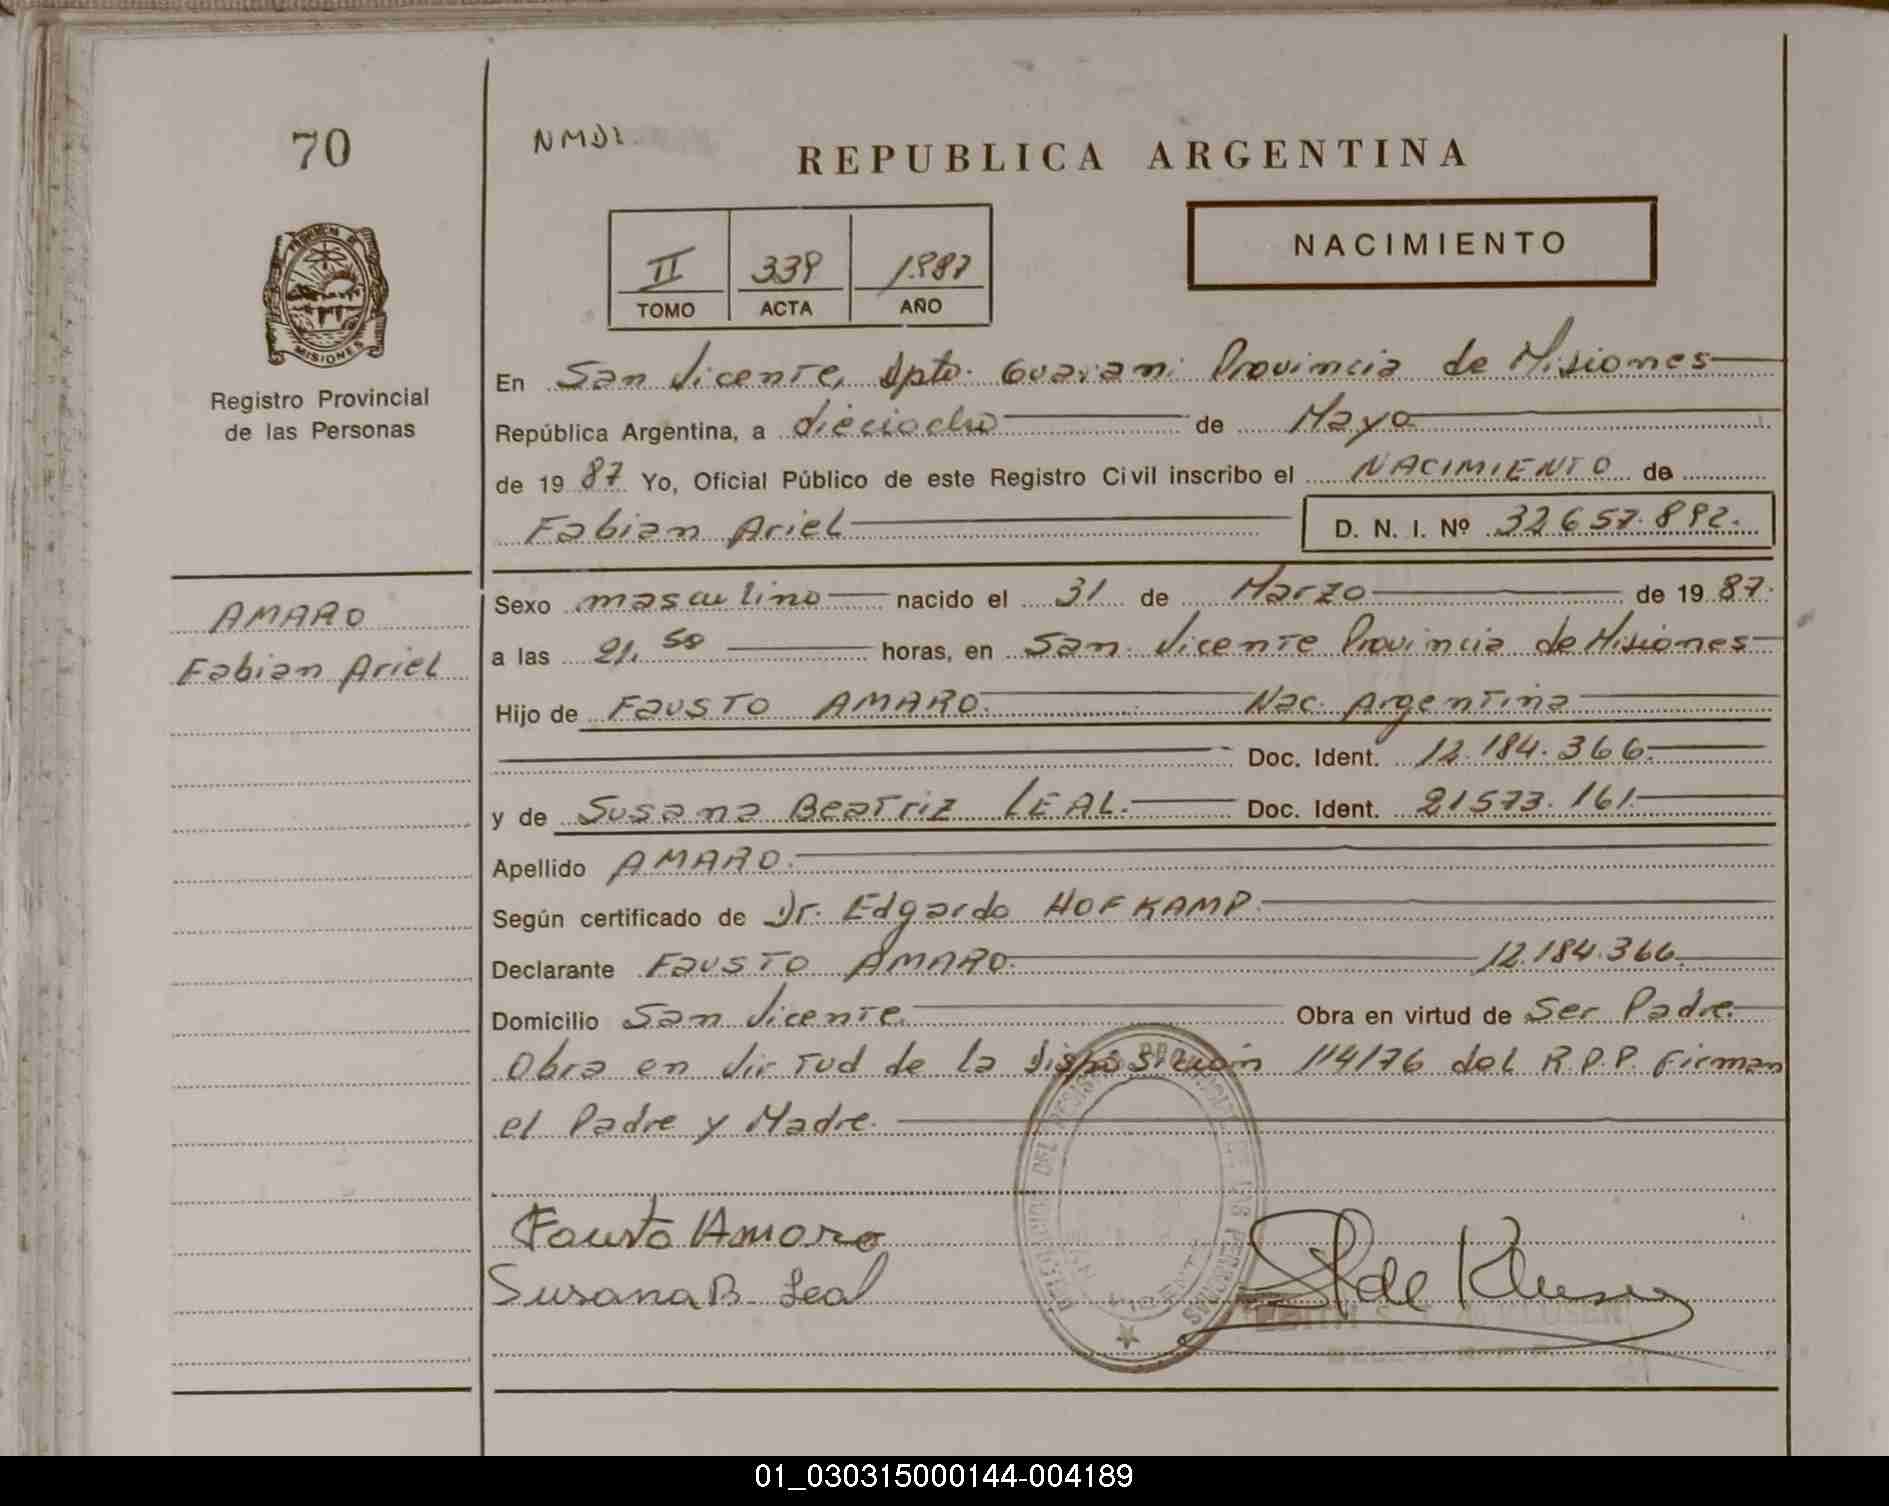 70
NMDI
REPUBLICA ARGENTINA
II 339 1987
TOMO ACTA AÑO
NACIMIENTO
MISIONES
Registro Provincial
de las Personas
En San Vicente, Dpto. Guarani Provincia de Misiones
República Argentina, a dieciocho de Mayo
de 19 87 Yo, Oficial Público de este Registro Civil inscribo el NACIMIENTO de
Fabian Ariel D. N. I. Nº 32.657.892.
AMARO
Fabian Ariel
Sexo masculino nacido el 31 de Marzo de 19 87.
a las 21,50 horas, en San Vicente Provincia de Misiones
Hijo de Fausto AMARO. Nac. Argentina
Doc. Ident. 12.184.366.
y de Susana Beatriz LEAL. Doc. Ident. 21573.161.
Apellido AMARO.
Según certificado de Dr. Edgardo HOFKAMP.
Declarante Fausto AMARO. 12.184.366.
Domicilio San Vicente. Obra en virtud de Ser Padre.
Obra en virtud de la disposición 114/76 del R.P.P. Firman
el Padre y Madre.
Fausto Amaro
Susana B. Leal
01_030315000144-004189